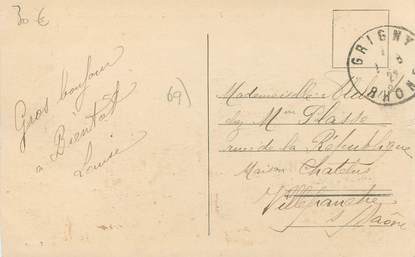 30 €
Gros bonjour
a Bientot
Louise
69)
GRIGNY
RHONE
Mademoiselle
chez Mme Plasse
rue de la République
Maison Chatelus
Villefranche
s/ Saône